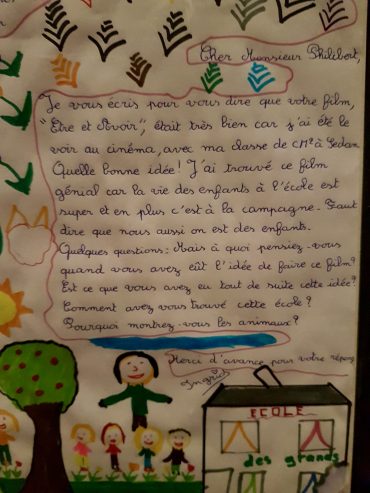 Cher Monsieur Philibert,
Je vous écris pour vous dire que votre film,
"Etre et Avoir", était très bien car j'ai été le
voir au cinéma, avec ma classe de CM² à Sedan
Quelle bonne idée! J'ai trouvé ce film
génial car la vie des enfants à l'école est
super et en plus c'est à la campagne. Faut
dire que nous aussi on est des enfants.
Quelques questions: Mais à quoi pensiez-vous
quand vous avez eût l'idée de faire ce film?
Est ce que vous avez eu tout de suite cette idée?
Comment avez vous trouvé cette école?
Pourquoi montrez-vous les animaux?
Merci d'avance pour votre
Ingrid
ECOLE
des grands